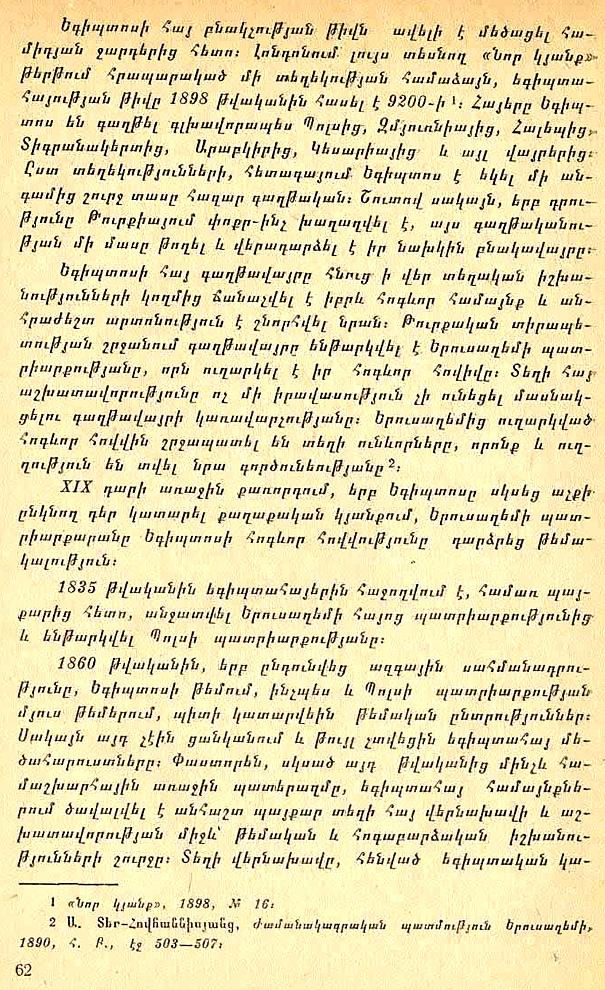 Եգիպտոսի հայ բնակչության թիվն ավելի է մեծացել հա-
միդյան ջարդերից հետո։ Լոնդոնում լույս տեսնող «Նոր կյանք»
թերթում հրապարակած մի տեղեկության համաձայն, եգիպտա-
հայության թիվը 1898 թվականին հասել է 9200-ի ¹։ Հայերը Եգիպ-
տոս են գաղթել գլխավորապես Պոլսից, Զմյուռնիայից, Հալեպից,
Տիգրանակերտից, Արաբկիրից, Կեսարիայից և այլ վայրերից։
Ըստ տեղեկությունների, հետագայում Եգիպտոս է եկել մի ան-
գամից շուրջ տասը հազար գաղթական։ Շուտով սակայն, երբ դրու-
թյունը Թուրքիայում փոքր-ինչ խաղաղվել է, այս գաղթականու-
թյան մի մասը թողել և վերադարձել է իր նախկին բնակավայրը։
Եգիպտոսի հայ գաղթավայրը հնուց ի վեր տեղական իշխա-
նությունների կողմից ճանաչվել է իբրև հոգևոր համայնք և ան-
հրաժեշտ արտոնություն է շնորհվել նրան։ Թուրքական տիրապե-
տության շրջանում գաղթավայրը ենթարկվել է Երուսաղեմի պատ-
րիարքությանը, որն ուղարկել է իր հոգևոր հովիվը։ Տեղի հայ
աշխատավորությունը ոչ մի իրավասություն չի ունեցել մասնակ-
ցելու գաղթավայրի կառավարչությանը։ Երուսաղեմից ուղարկված
հոգևոր հովվին շրջապատել են տեղի ունևորները, որոնք և ուղ-
ղություն են տվել նրա գործունեությանը ²։
XIX դարի առաջին քառորդում, երբ Եգիպտոսը սկսեց աչքի
ընկնող դեր կատարել քաղաքական կյանքում, Երուսաղեմի պատ-
րիարքարանը Եգիպտոսի հոգևոր հովվությունը դարձրեց թեմա-
կալություն։
1835 թվականին եգիպտահայերին հաջողվում է, համառ պայ-
քարից հետո, անջատվել Երուսաղեմի հայոց պատրիարքությունից
և ենթարկվել Պոլսի պատրիարքությանը։
1860 թվականին, երբ ընդունվեց ազգային սահմանադրու-
թյունը, Եգիպտոսի թեմում, ինչպես և Պոլսի պատրիարքության
մյուս թեմերում, պիտի կատարվեին թեմական ընտրություններ։
Սակայն այդ չէին ցանկանում և թույլ չտվեցին եգիպտահայ մե-
ծահարուստները։ Փաստորեն, սկսած այդ թվականից մինչև հա-
մաշխարհային առաջին պատերազմը, եգիպտահայ համայնքնե-
րում ծավալվել է անհաշտ պայքար տեղի հայ վերնախավի և աշ-
խատավորության միջև՝ թեմական և հոգաբարձական իշխանու-
թյունների շուրջը։ Տեղի վերնախավը, հենված եգիպտական կա-
1 «Նոր կյանք», 1898, № 16։
2 Ա. Տեր-Հովհաննիսյանց, Ժամանակագրական պատմություն Երուսաղեմի,
1890, հ. Բ., էջ 503—507։
62